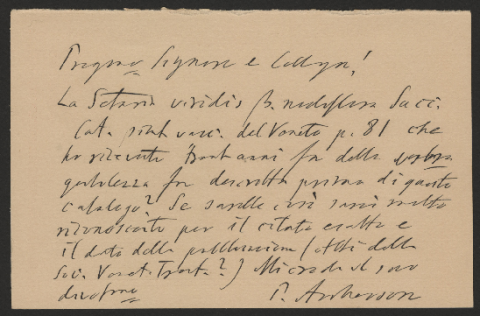 Pregmo Signore e Collega!
La Setaria viridis β. nodiflora Sacc.
Cat. piant. vasc. del Veneto p. 81 che
ho ricevuto trent'anni fa dalla
gentilezza fu descritta prima di questo
catalogo? Se sarebbe così sarei molto
riconoscente per il citato esatto e
il dato della pubblicazione (Atti della
Soc. Venet. Trent.?) Mi creda il suo
devotmo P. Ascherson